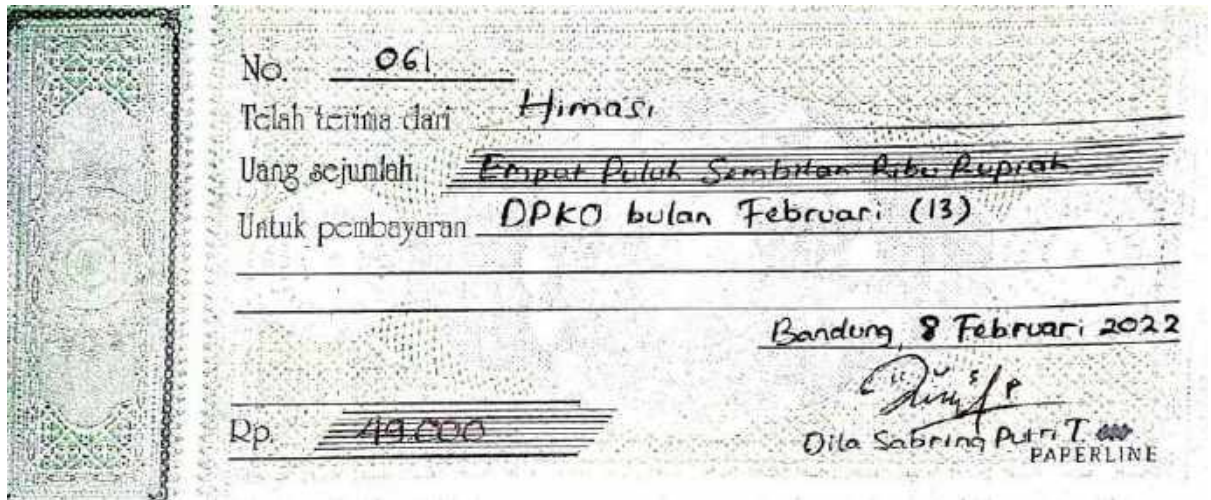 No. 061
Telah terima dari Himasi
Uang sejumlah Empat Puluh Sembilan Ribu Rupiah
Untuk pembayaran DPKO bulan Februari (13)
Bandung, 8 Februari 2022
Rp. 49.000
Dila Sabrina Putri T.
PAPERLINE